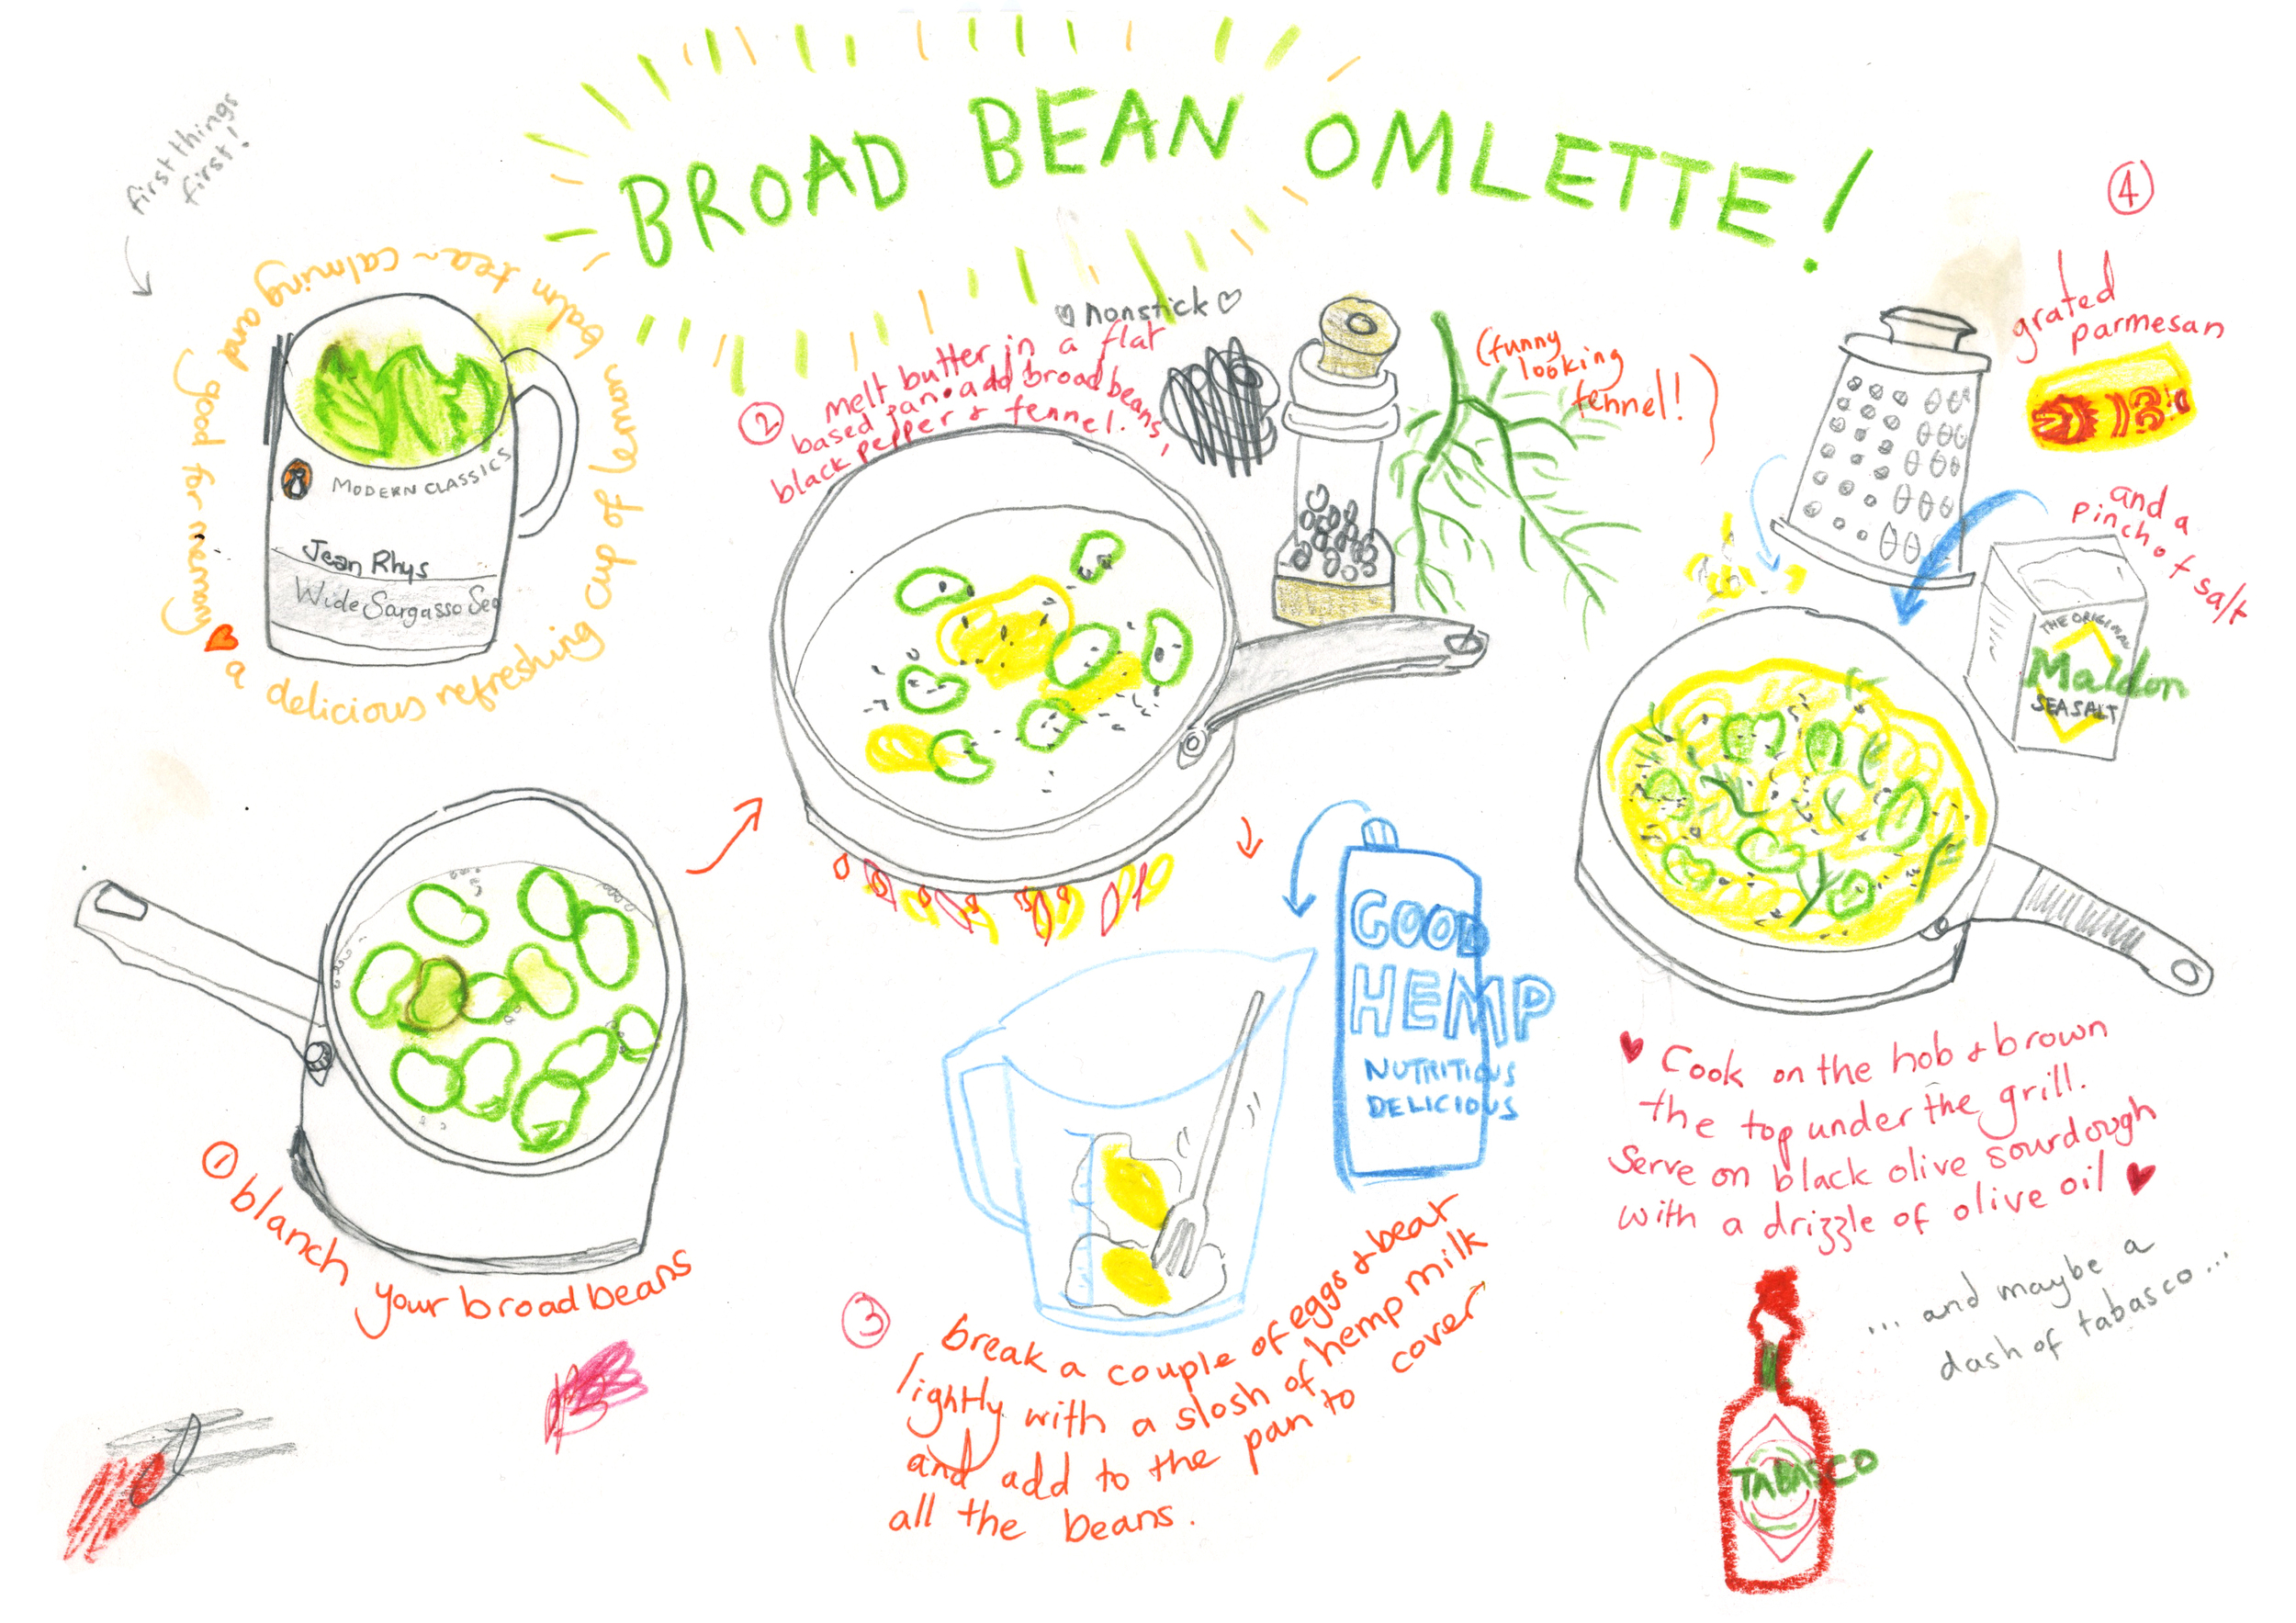 BROAD BEAN OMLETTE!
first things
first!
a delicious refreshing cup of lemon balm tea ~ calming and good for memory
MODERN CLASSICS
Jean Rhys
Wide Sargasso Sea
① blanch your broad beans
nonstick
② melt butter in a flat
based pan. add broad beans,
black pepper + fennel.
(funny
looking
fennel!)
GOOD
HEMP
NUTRITIOUS
DELICIOUS
③ break a couple of eggs + beat
lightly with a slosh of hemp milk
and add to the pan to cover
all the beans.
④
grated
parmesan
and a
pinch of salt
THE ORIGINAL
Maldon
SEA SALT
Cook on the hob + brown
the top under the grill.
Serve on black olive sourdough
with a drizzle of olive oil
... and maybe a
dash of tabasco ...
TABASCO